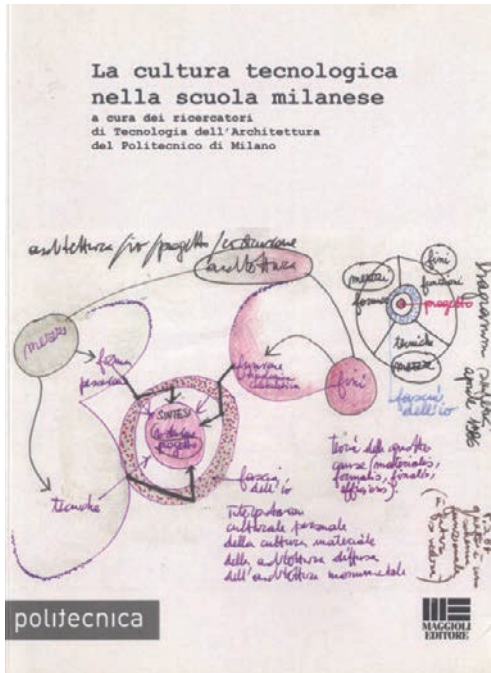 La cultura tecnologica
nella scuola milanese
a cura dei ricercatori
di Tecnologia dell'Architettura
del Politecnico di Milano
architettura/io/progetto/costruzione
architettura
mezzi
forma
tecniche
funzione
fini
SINTESI
progetto
fascia
dell'io
mezzi
forme
fini
funzioni
progetto
tecniche
fascia
dell'io
aprile 1986
teoria delle quattro
cause (materialis,
formalis, finalis,
efficiens).
culturale personale
della cultura materiale
della architettura diffusa
dell'architettura monumentale
politecnica
MAGGIOLI
EDITORE